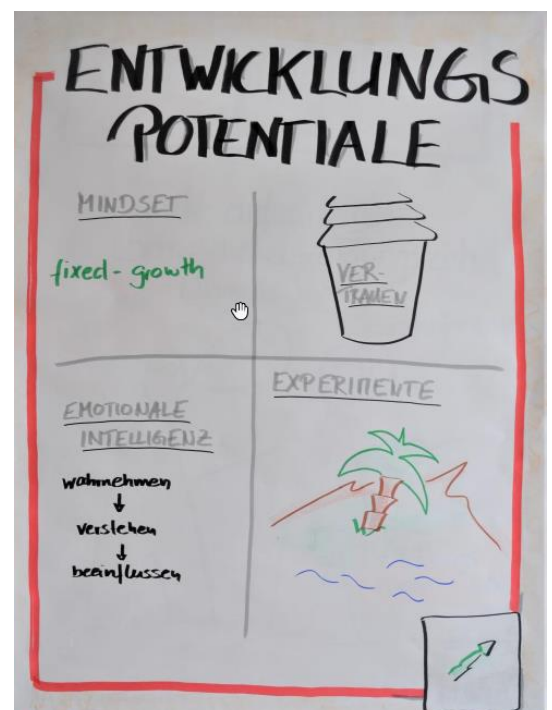 ENTWICKLUNGS
POTENTIALE
MINDSET
fixed - growth
VER-
TRAUEN
EMOTIONALE
INTELLIGENZ
wahrnehmen
verstehen
beeinflussen
EXPERIMENTE